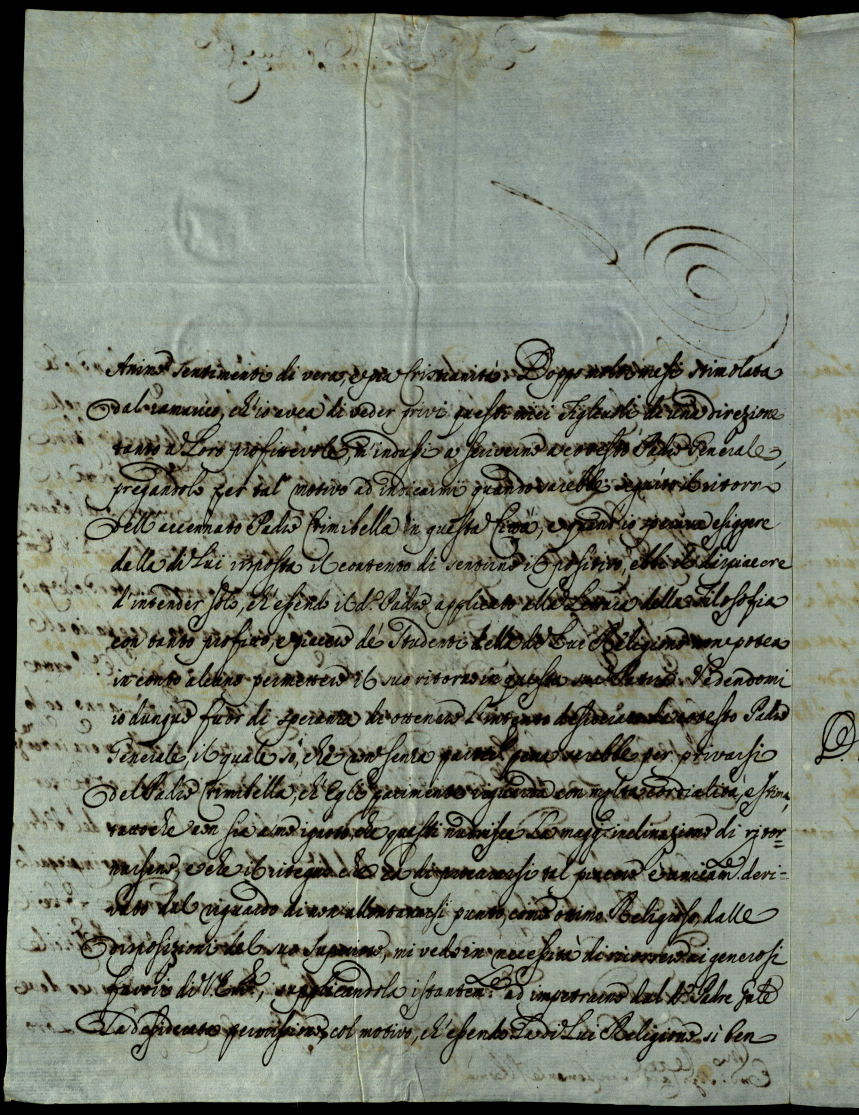 Animo sentimenti di vera, e pia Cristianità. Doppo molti mesi stimolata
dal ramarico, ch'io avea di veder privi questi miei Figliuoli di una direzione
tanto a Loro profittevole, m'indussi a scriverne a cotesto Padre Generale,
pregandolo per tal motivo ad indicarmi quando sarebbe seguito il ritorno
dell'accennato Padre Crimibella in questa Città, e quand'io sperava esiggere
dalla di Lui risposta il contento di sentirne il positivo, ebbi il dispiacere
d'intender solo, ch'essendo il d.º Padre applicato alla Lettura della Filosofia
con tanto profitto, e piacere de' Studenti della di Lui Religione non potea
in conto alcuno permettere il suo ritorno in questa sua Patria. Vedendomi
io dunque fuor di speranza di ottenere l'intento da cotesto Padre
Generale, il quale sò, che non senza pena sarebbe per privarsi
del Padre Crimibella, ch'Egli parimente riguarda con molta cordialità, e stima,
tuttoche non sia a me ignoto, che questi nudrisce la magg.e inclinazione di ritor=
narsene, e che il ritegno che ha di procacciarsi tal piacere è unicam.e deri=
vato dal riguardo di non allontanarsi punto, come ottimo Religioso, dalle
disposizioni del suo Superiore, mi vedo in necessità di ricorrere ai generosi
favori di V. Em.a, supplicandola istantem.e ad impetrarne dal d.º Padre Gnle
la desiderata permissione, col motivo, ch'essendo la di Lui Religione si ben